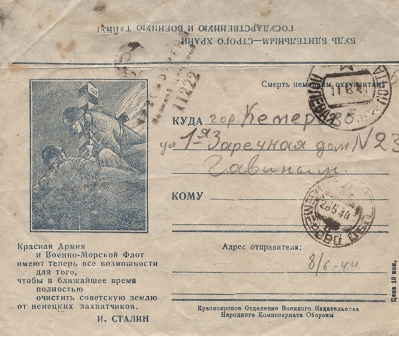 БУДЬ БДИТЕЛЬНЫМ—СТРОГО ХРАНИ
ГОСУДАРСТВЕННУЮ И ВОЕННУЮ ТАЙНУ!
Смерть немецким оккупантам
КУДА гор. Кемер
ул 1-ая Заречная дом N 23
Гавиным
КОМУ
Адрес отправителя:
8/6-44
Красная Армия
и Военно-Морской Флот
имеют теперь все возможности
для того,
чтобы в ближайшее время
полностью
очистить советскую землю
от немецких захватчиков.
И. СТАЛИН
Красноярское Отделение Военного Издательства
Народного Комиссариата Обороны
Цена 10 коп.